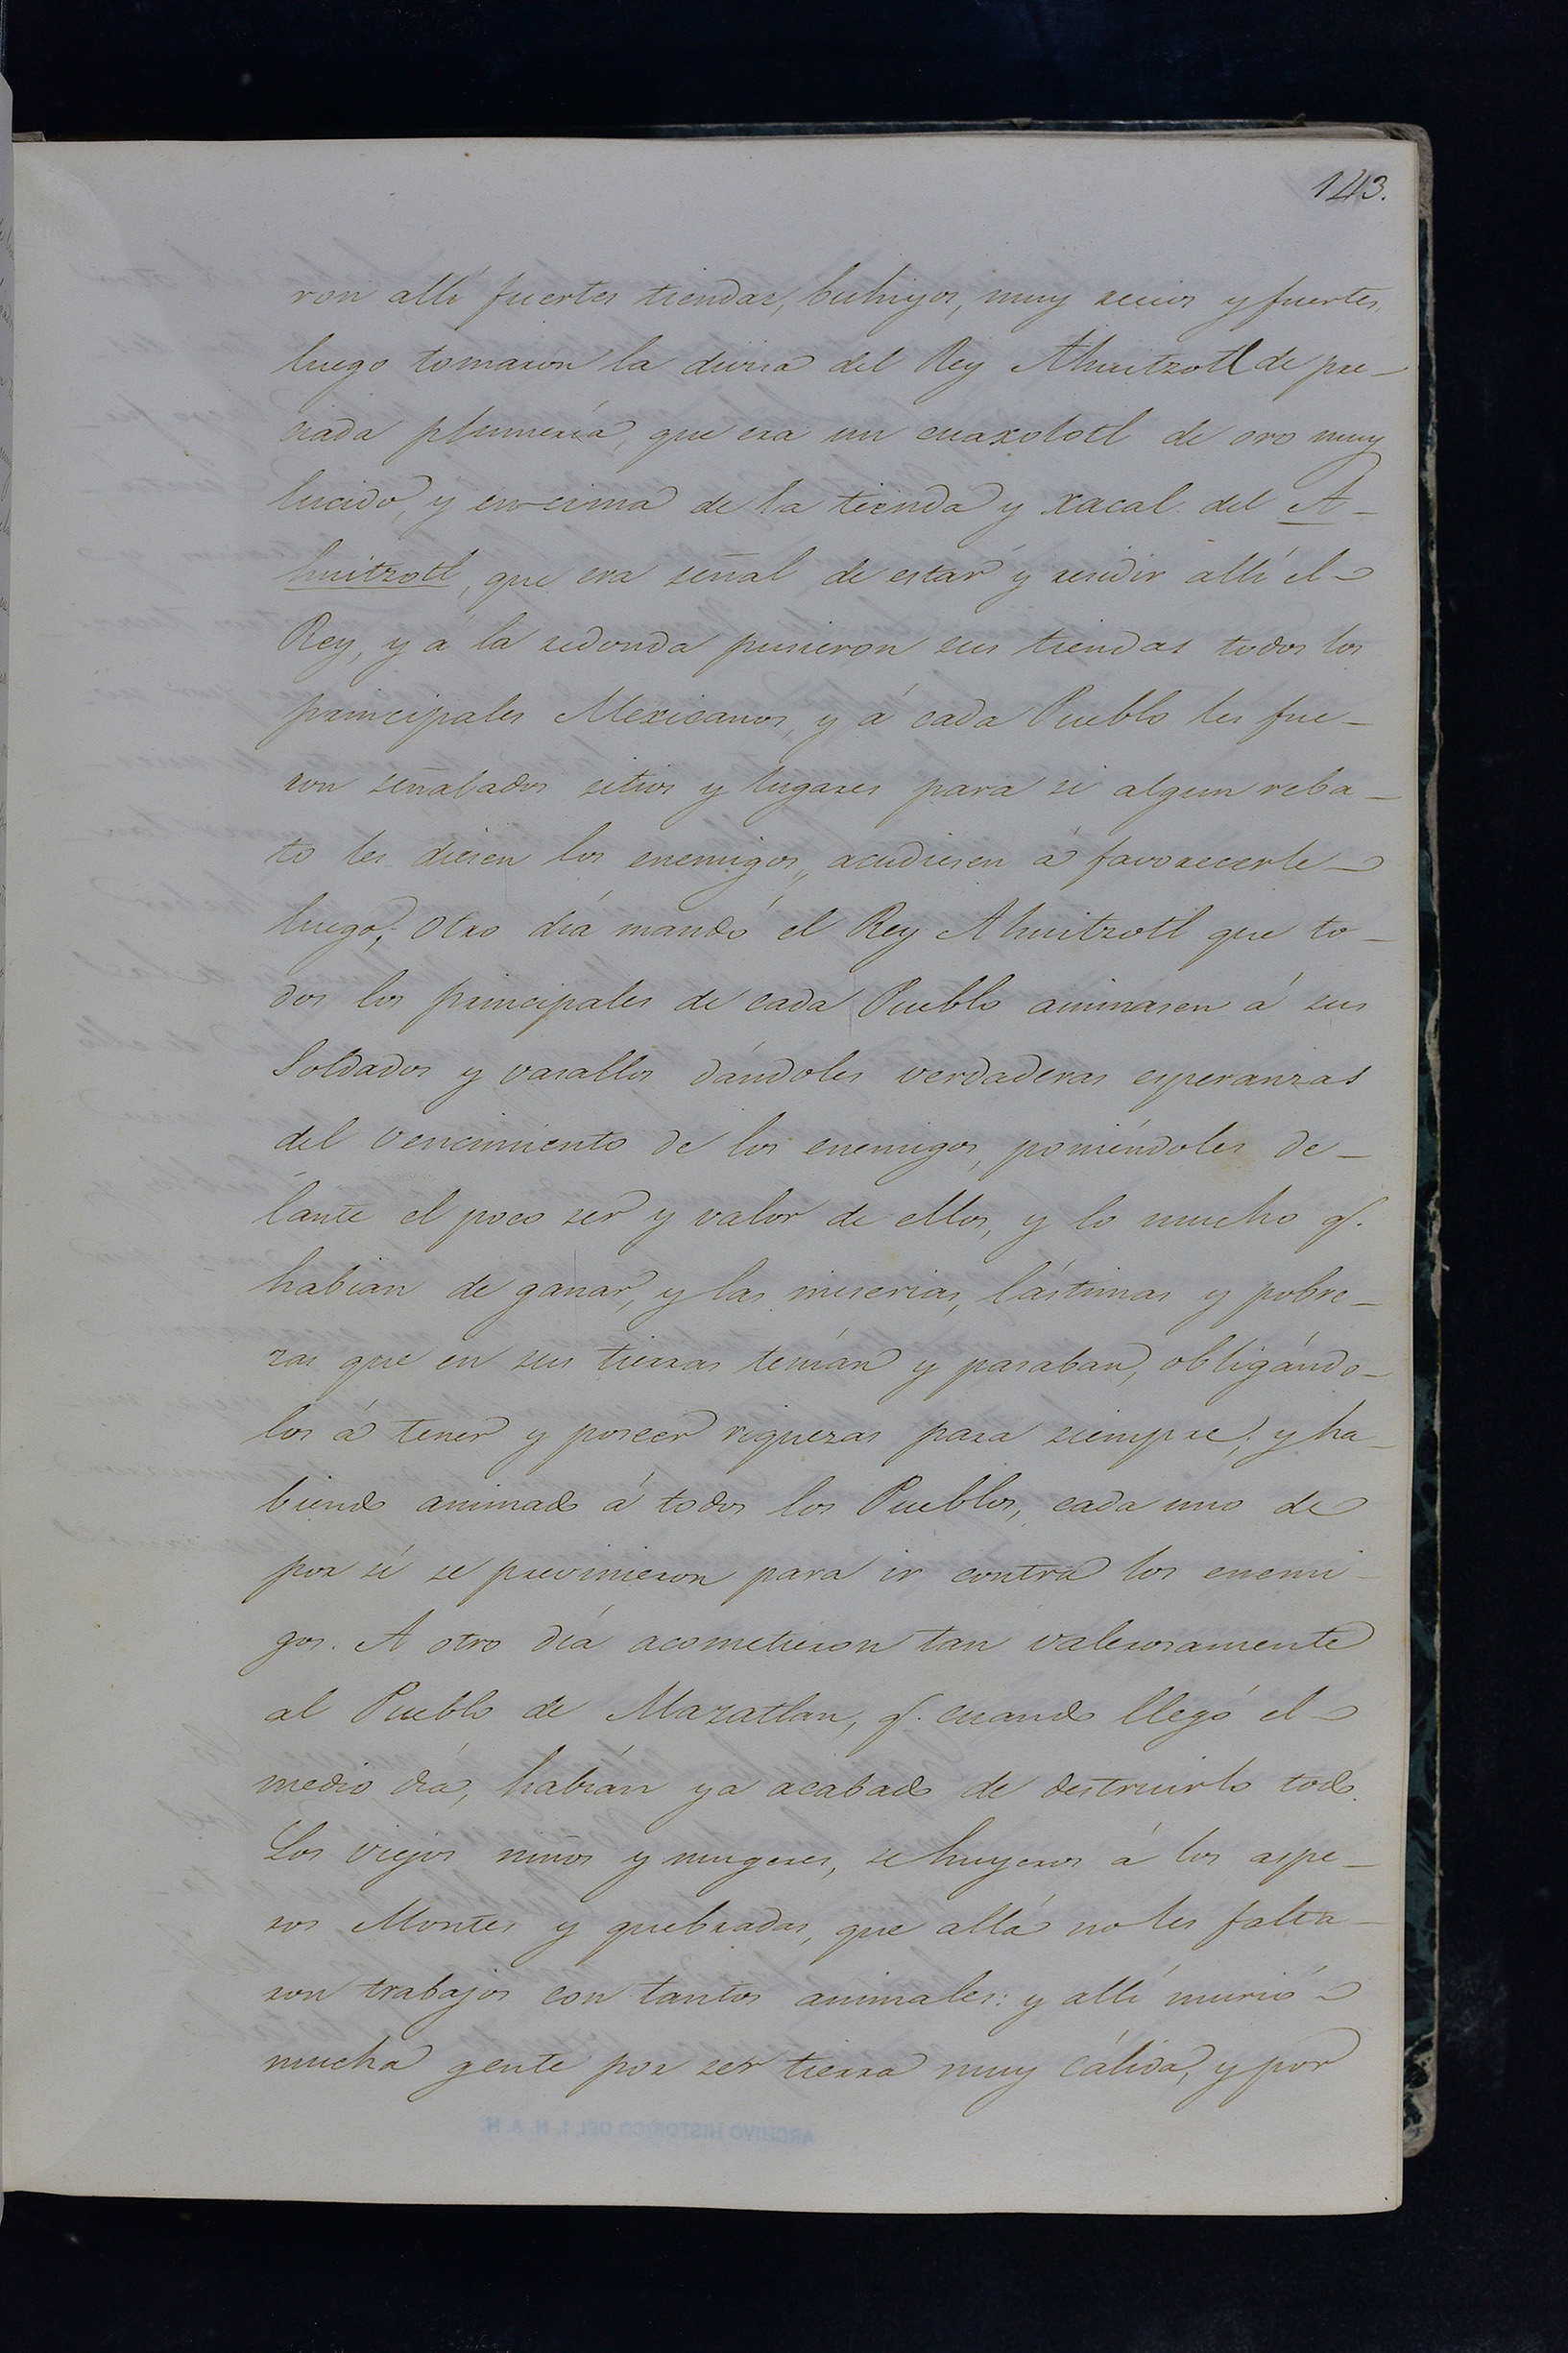 143.
ron allí fuertes tiendas, buhiyos, muy recios y fuertes,
luego tomaron la divisa del Rey Ahuitzotl de pre-
ciada plumería, que era un cuaxolotl de oro muy
lucido, y encima de la tienda y xacal del A-
huitzotl, que era señal de estar y residir allí el
Rey, y á la redonda pusieron sus tiendas todos los
principales Mexicanos, y á cada Pueblo les fue-
ron señalados sitios y lugares para si algun reba-
to les diesen los enemigos, acudiesen á favorecerle
luego; otro día mandó el Rey Ahuitzotl que to-
dos los principales de cada Pueblo animasen á sus
Soldados y vasallos dándoles verdaderas esperanzas
del vencimiento de los enemigos, poniéndoles de-
lante el poco ser y valor de ellos, y lo mucho q.
habian de ganar, y las miserias, lástimas y pobre-
zas que en sus tierras tenían y pasaban, obligándo-
los á tener y poseer riquezas para siempre; y ha-
biendo animado á todos los Pueblos, cada uno de
por sí se previnieron para ir contra los enemi-
gos. A otro día acometieron tan valerosamente
al Pueblo de Mazatlan, q. cuando llegó el
medio día, habían ya acabado de destruirlo todo.
Los viejos niños y mugeres, se huyeron á los aspe-
ros Montes y quebradas, que allá no les falta-
ron trabajos con tantos animales: y allí murió
mucha gente por ser tierra muy cálida, y por
ARCHIVO HISTORICO DEL I. N. A. H.